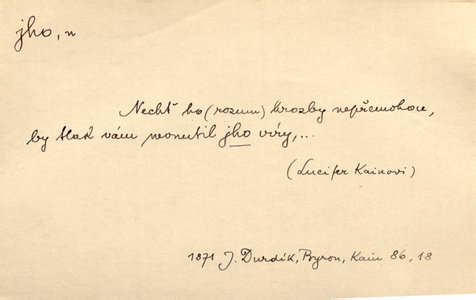 jho, n
Nechť ho (rozum) hrozby nepřemohou,
by tlak vám vnutil jho víry,...
(Lucifer Kainovi)
1871 J. Durdík, Byron, Kain 86, 18